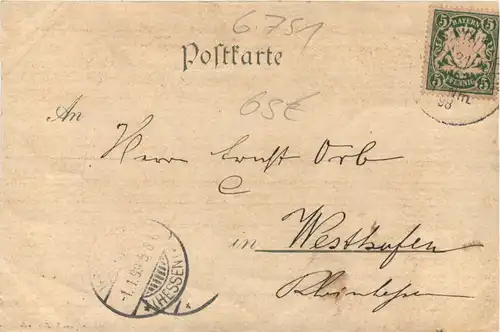 6.751
Postkarte
5 BAYERN 5
5 PFENNIG 5
98
65€
An
Herrn Ernst Orb
in Westhofen
Rheinhessen
1.1.99
(HESSEN)